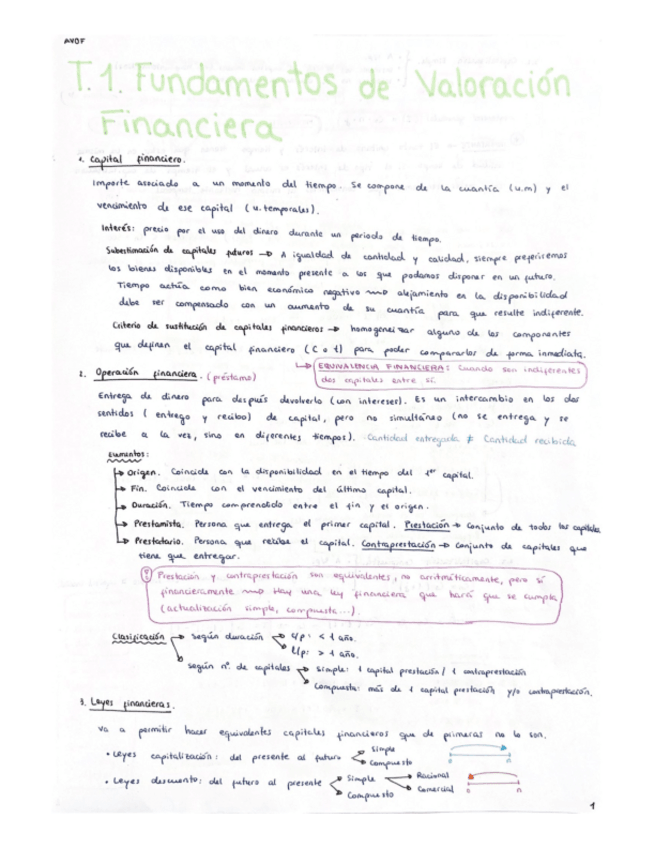 AVOF
T.1. Fundamentos de Valoración
Financiera
1. Capital financiero.
Importe asociado a un momento del tiempo. Se compone de la cuantía (u.m) y el
vencimiento de ese capital (u.temporales).
Interés: precio por el uso del dinero durante un periodo de tiempo.
Subestimación de capitales futuros → A igualdad de cantidad y calidad, siempre preferiremos
los bienes disponibles en el momento presente a los que podamos disponer en un futuro.
Tiempo actúa como bien económico negativo → alejamiento en la disponibilidad
debe ser compensado con un aumento de su cuantía para que resulte indiferente.
Criterio de sustitución de capitales financieros → homogeneizar alguno de los componentes
que definen el capital financiero (C o t) para poder compararlos de forma inmediata.
→ EQUIVALENCIA FINANCIERA: Cuando son indiferentes
dos capitales entre sí.
2. Operación financiera. (préstamo)
Entrega de dinero para después devolverlo (con intereses). Es un intercambio en los dos
sentidos (entrego y recibo) de capital, pero no simultáneo (no se entrega y se
recibe a la vez, sino en diferentes tiempos). Cantidad entregada ≠ Cantidad recibida
Elementos:
→ Origen. Coincide con la disponibilidad en el tiempo del 1er capital.
→ Fin. Coincide con el vencimiento del último capital.
→ Duración. Tiempo comprendido entre el fin y el origen.
→ Prestamista. Persona que entrega el primer capital. Prestación → Conjunto de todos los capitales
→ Prestatario. Persona que recibe el capital. Contraprestación → Conjunto de capitales que
tiene que entregar.
Prestación y contraprestación son equivalentes, no arritméticamente, pero sí
financieramente → Hay una ley financiera que hará que se cumpla
(actualización simple, compuesta...).
Clasificación → según duración → C/p: < 1 año.
L/p: > 1 año.
según nº. de capitales → Simple: 1 capital prestación / 1 contraprestación
Compuesta: más de 1 capital prestación y/o contraprestación.
3. Leyes financieras.
Va a permitir hacer equivalentes capitales financieros que de primeras no lo son.
• Leyes capitalización: del presente al futuro → Simple
Compuesto
0 n
• Leyes descuento: del futuro al presente → Simple → Racional
Comercial
Compuesto
0 n
1